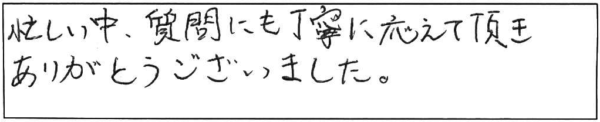 忙しい中、質問にも丁寧に応えて頂き
ありがとうございました。